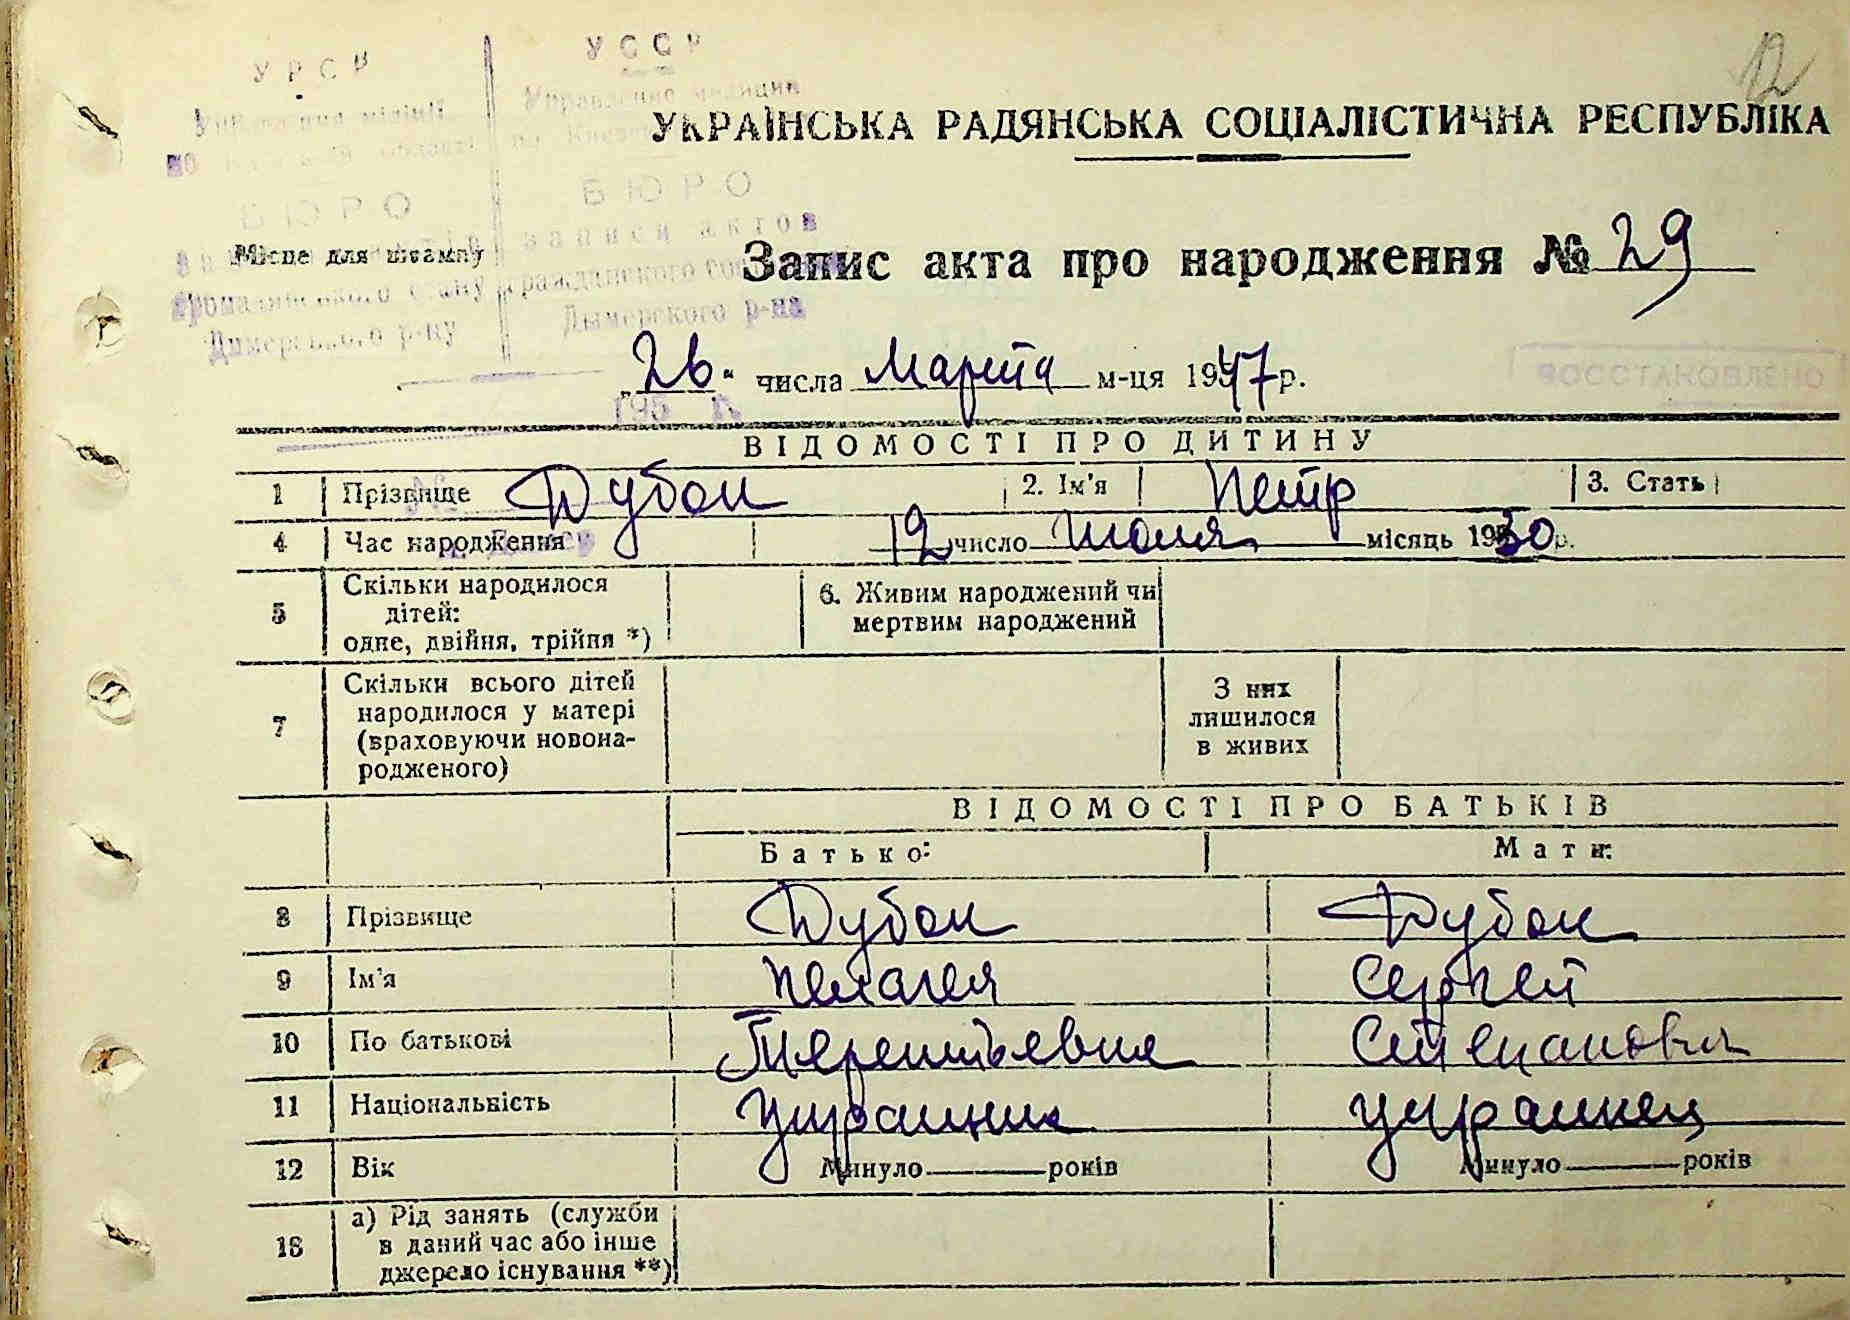 12
УРСР
УССР
Управление милиции
БЮРО
БЮРО
записи актов
гражданского
Димерського р-ну
Дымерского р-на
195 г.
УКРАЇНСЬКА РАДЯНСЬКА СОЦІАЛІСТИЧНА РЕСПУБЛІКА
Місце для штампу
Запис акта про народження № 29
„26“ числа Марта м-ця 1947 р.
ВОССТАНОВЛЕНО
ВІДОМОСТІ ПРО ДИТИНУ
1 Прізвище Дубок 2. Ім'я Петр 3. Стать
4 Час народження 12 число Июля місяць 1930 р.
5 Скільки народилося дітей: одне, двійня, трійня *) 6. Живим народжений чи мертвим народжений
7 Скільки всього дітей народилося у матері (враховуючи новонародженого) З них лишилося в живих
ВІДОМОСТІ ПРО БАТЬКІВ
Батько: Мати:
8 Прізвище Дубок Дубок
9 Ім'я Пелагея Сергей
10 По батькові Терентьевна Степанович
11 Національність Украинка украинец
12 Вік Минуло років Минуло років
13 а) Рід занять (служби в даний час або інше джерело існування **)